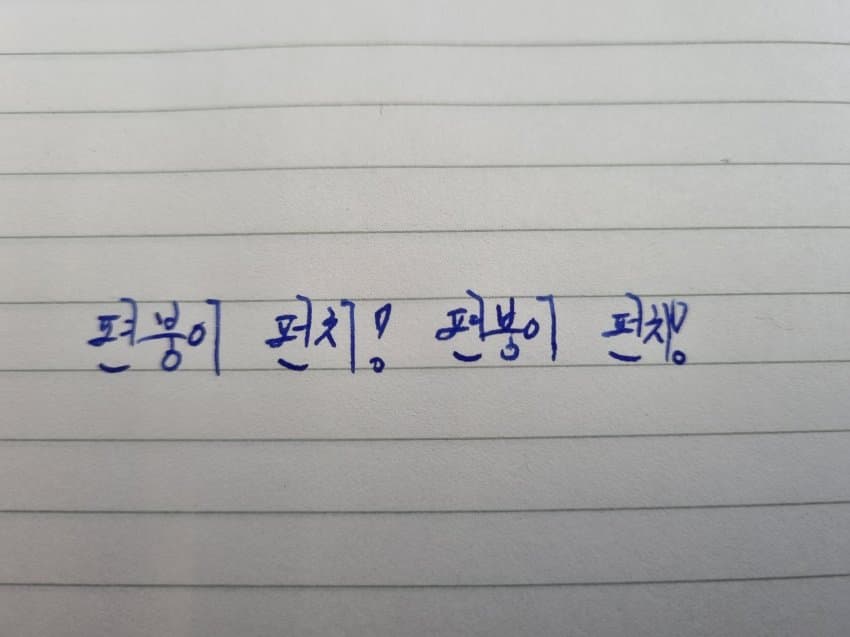 펀붕이 펀치! 펀붕이 펀치!